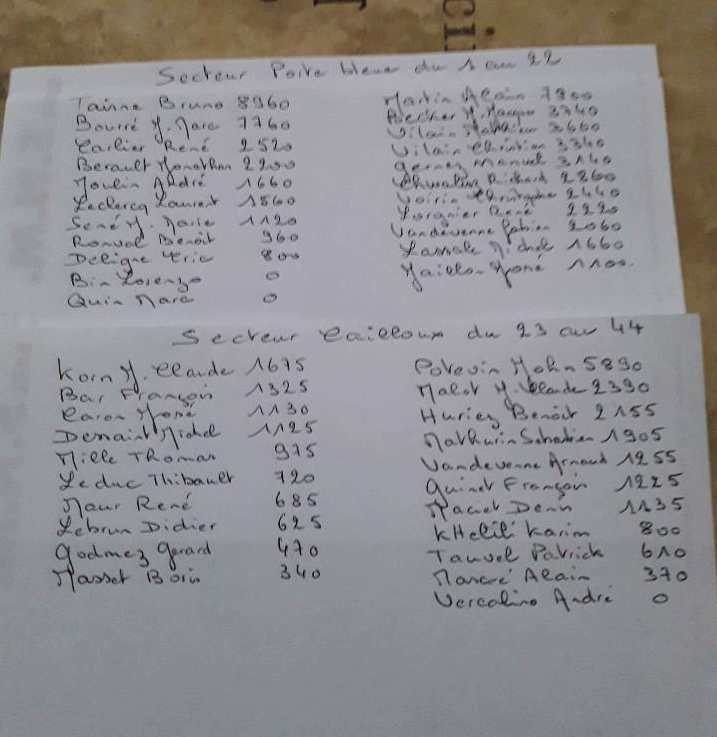 Secteur Poite bleue du 1 au 22
Tainne Bruno 8960
Bourré M. Marc 7760
Carlier René 2520
Berault Jonathan 2200
Moulin André 1660
Leclercq Laurent 1560
Sené M. Marie 1120
Ronval Benoît 960
Deligne Eric 800
Bin Lorenzo 0
Quin Marc 0
Martin Alain 7900
Becker M. 3740
Vilain Matthieu 3660
Vilain Christian 3340
Gernez Manuel 3140
Richard 2860
Voirin Christophe 2440
Lorgnier René 2220
Vandevenne Fabien 2060
Lassale Michel 1660
Maillon 1100.
Secteur Cailloux du 23 au 44
Korn M. Claude 1675
Bar François 1325
Caron 1130
Dessaint Michel 1125
Mille Thomas 975
Leduc Thibault 720
Maur René 685
Lebrun Didier 625
Godmez Gérard 470
Masset Boris 340
Potevin John 5890
Malot M. Claude 2390
Huriez Benoît 2155
Mathurin Sebastien 1905
Vandevenne Arnaud 1255
Quinet François 1225
Macret Denis 1135
KHelili Karim 800
Tauvel Patrick 610
Mancré Alain 370
Vercalino André 0